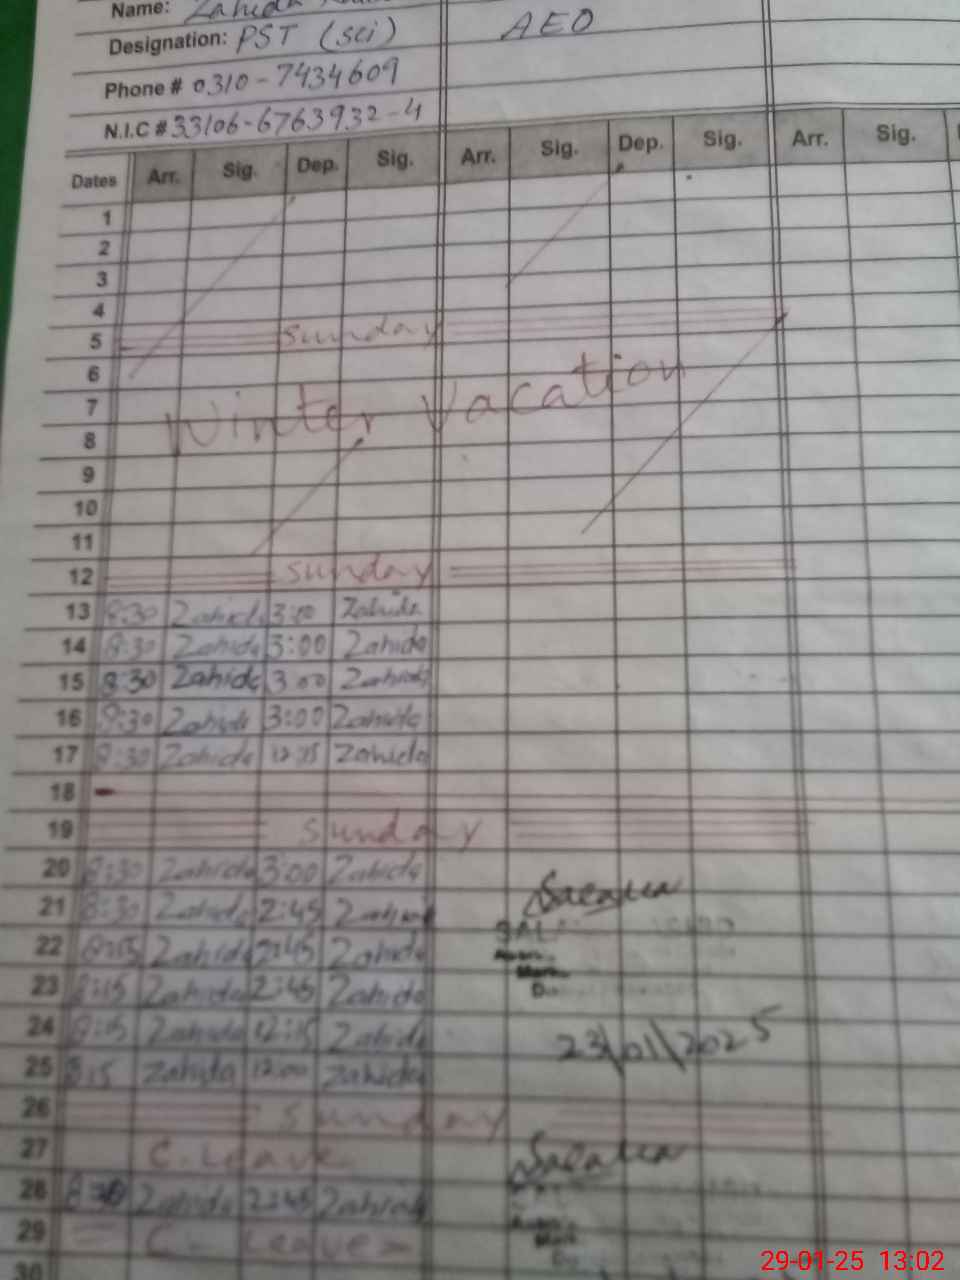 Name: Zahida
Designation: PST (sci) AEO
Phone # 0310-7434609
N.I.C # 33106-6763932-4
Dates Arr. Sig. Dep. Sig. Arr. Sig. Dep. Sig. Arr. Sig.
1
2
3
4
5 sunday
6
7 Winter Vacation
8
9
10
11
12 sunday
13 8:30 Zahida 3:00 Zahida
14 8:30 Zahida 3:00 Zahida
15 8:30 Zahida 3:00 Zahida
16 8:30 Zahida 3:00 Zahida
17 8:30 Zahida Zahida
18
19 sunday
20 8:30 Zahida 3:00 Zahida
21 8:30 Zahida 2:45 Zahida
22 Zahida 2:45 Zahida
23 8:15 Zahida 2:45 Zahida
24 Zahida 12:15 Zahida
23/01/2025
25 8:15 Zahida 12:00 Zahida
26 sunday
27 C. Leave
28 Zahida 2:45 Zahida
29 C. Leave
30
29-01-25 13:02